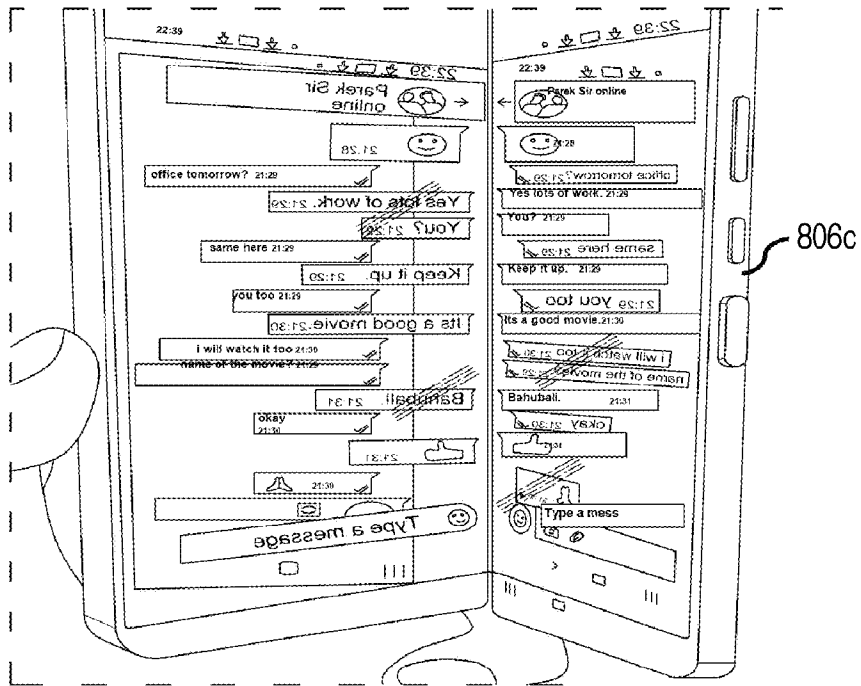 22:39
22:39
Parek Sir
online
21:28
office tomorrow? 21:29
Yes lots of work. 21:29
You? 21:29
same here 21:29
Keep it up. 21:29
you too 21:29
Its a good movie. 21:30
i will watch it too 21:30
name of the movie? 21:29
Bahubali. 21:31
okay
21:30
21:31
21:30
Type a message
22:39
22:39
Parek Sir online
21:28
office tomorrow? 21:29
Yes lots of work. 21:29
You? 21:29
same here 21:29
Keep it up. 21:29
you too 21:29
Its a good movie. 21:30
i will watch it too 21:30
name of the movie
Bahubali. 21:31
okay 21:30
21:31
Type a mess
806c